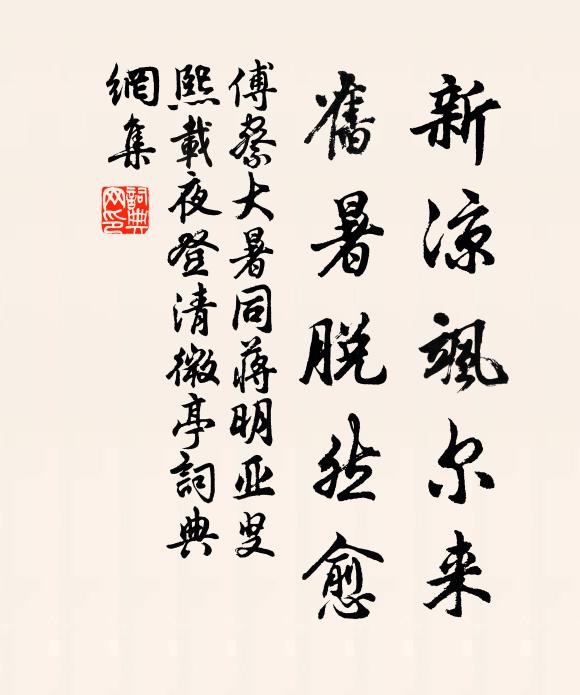 新涼颯尔来
舊暑脱然愈
傅察大暑同蔣明亚叟
熙載夜登清微亭詞典
網集
詞典網印